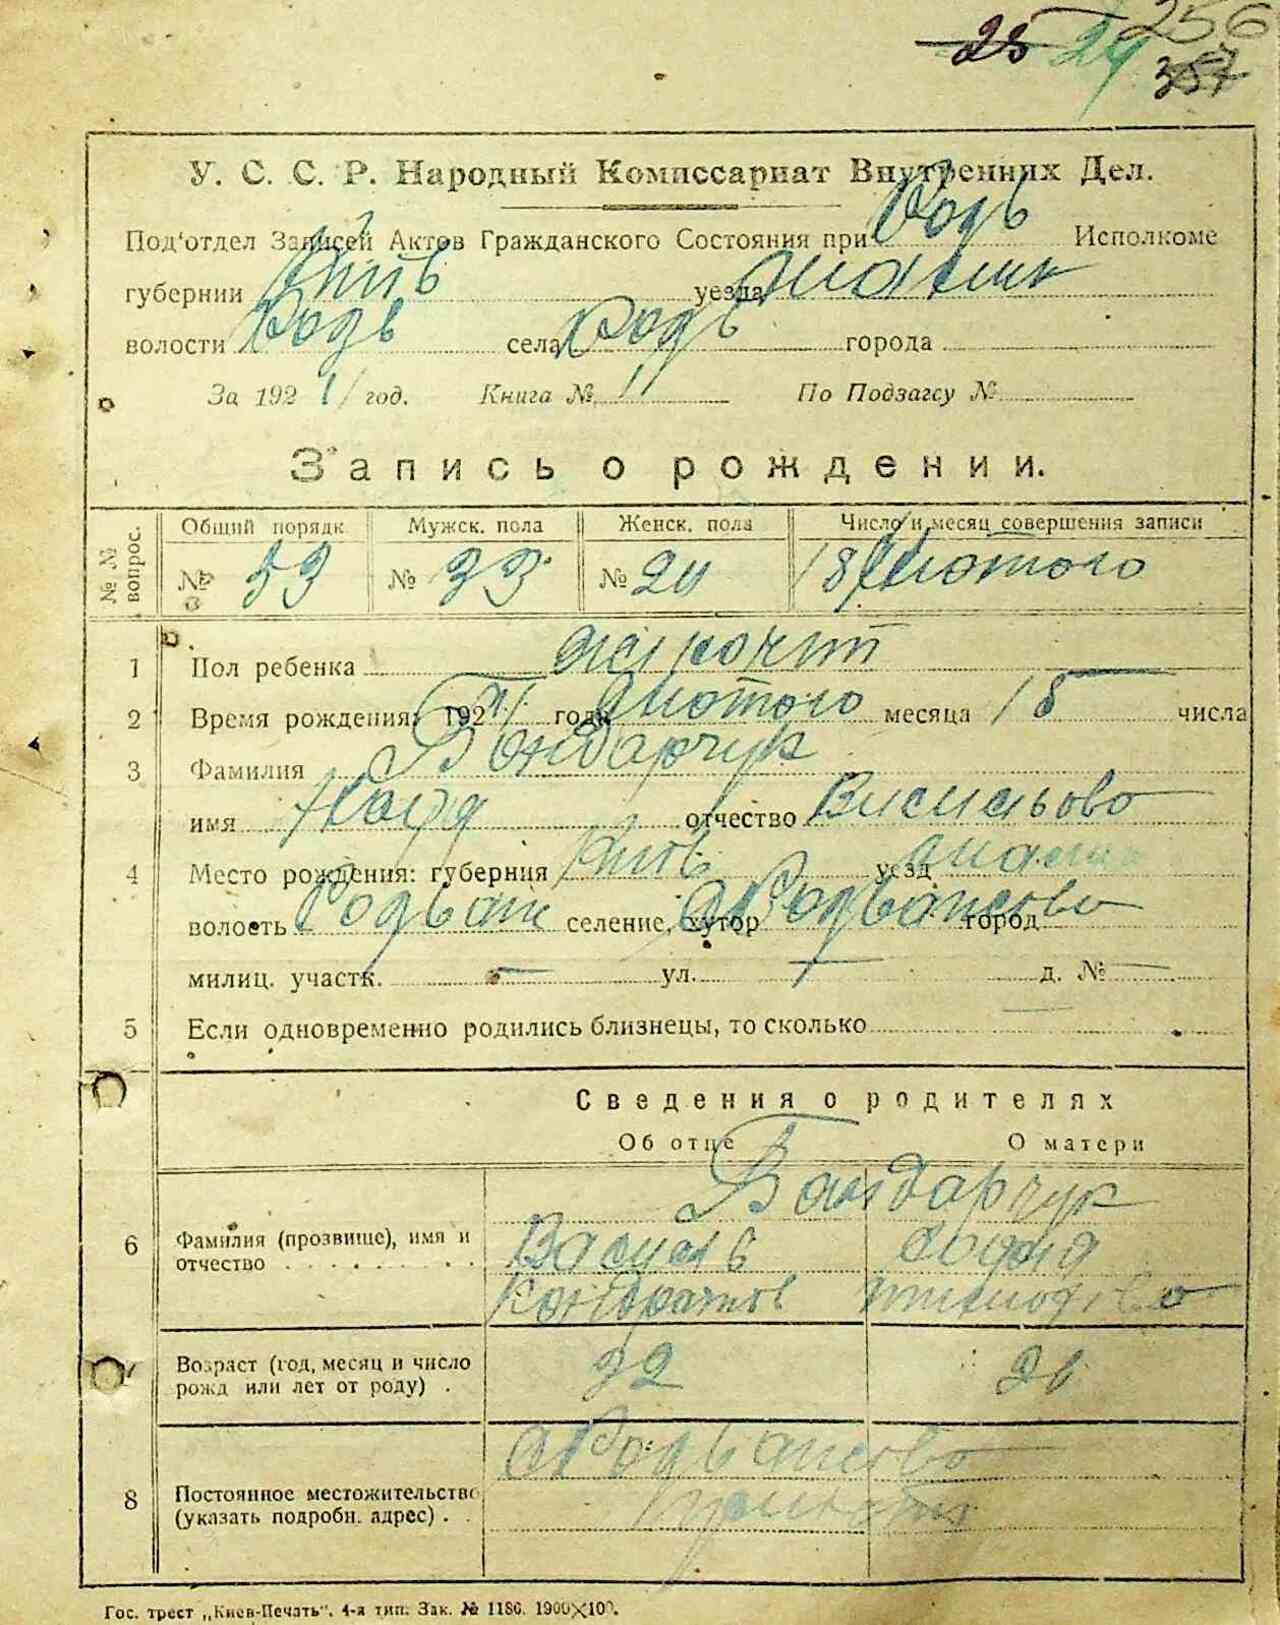 25 24 256
357
У. С. С. Р. Народный Комиссариат Внутренних Дел.
Под‘отдел Записей Актов Гражданского Состояния при Родв Исполкоме
губернии Київ уезда
волости Родв села Родв города
За 1921 год. Книга № 11 По Подзагсу №
Запись о рождении.
№ № вопрос. Общий порядк Мужск. пола Женск. пола Число и месяц совершения записи
№ 53 № 33 № 20 18 Лютого
1 Пол ребенка
2 Время рождения: 1921 года Лютого месяца 15 числа
3 Фамилия Бондарчук
имя отчество
4 Место рождения: губерния Київ уезд
волость селение, хутор город
милиц. участк. — ул. — д. № —
5 Если одновременно родились близнецы, то сколько
Сведения о родителях
Об отце О матери
Бандарчук
6 Фамилия (прозвище), имя и Василь Софія
отчество Кондратов
7 Возраст (год, месяц и число 32
рожд или лет от роду) .
8 Постоянное местожительство
(указать подробн. адрес) . .
Гос. трест „Киев-Печать“. 4-я тип. Зак. № 1186. 1900×100.